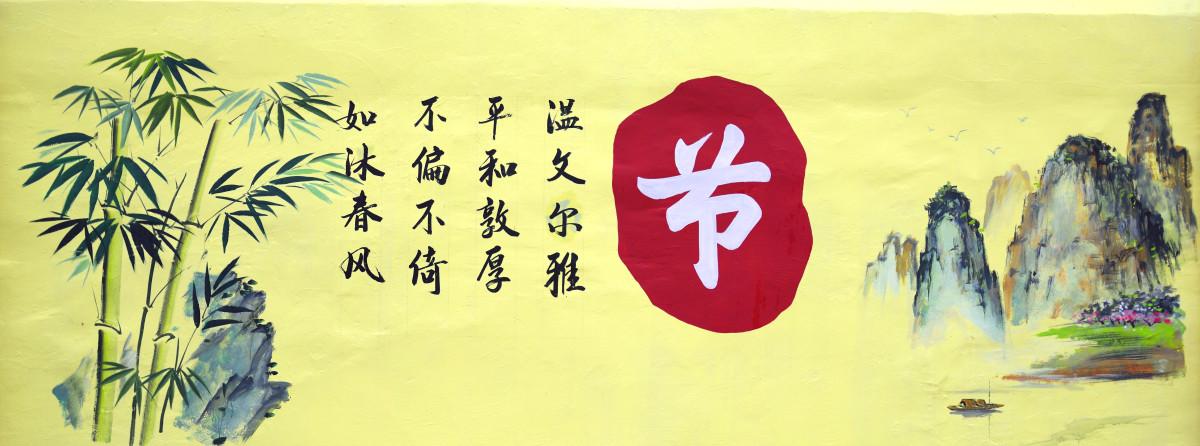 节
温文尔雅
平和敦厚
不偏不倚
如沐春风